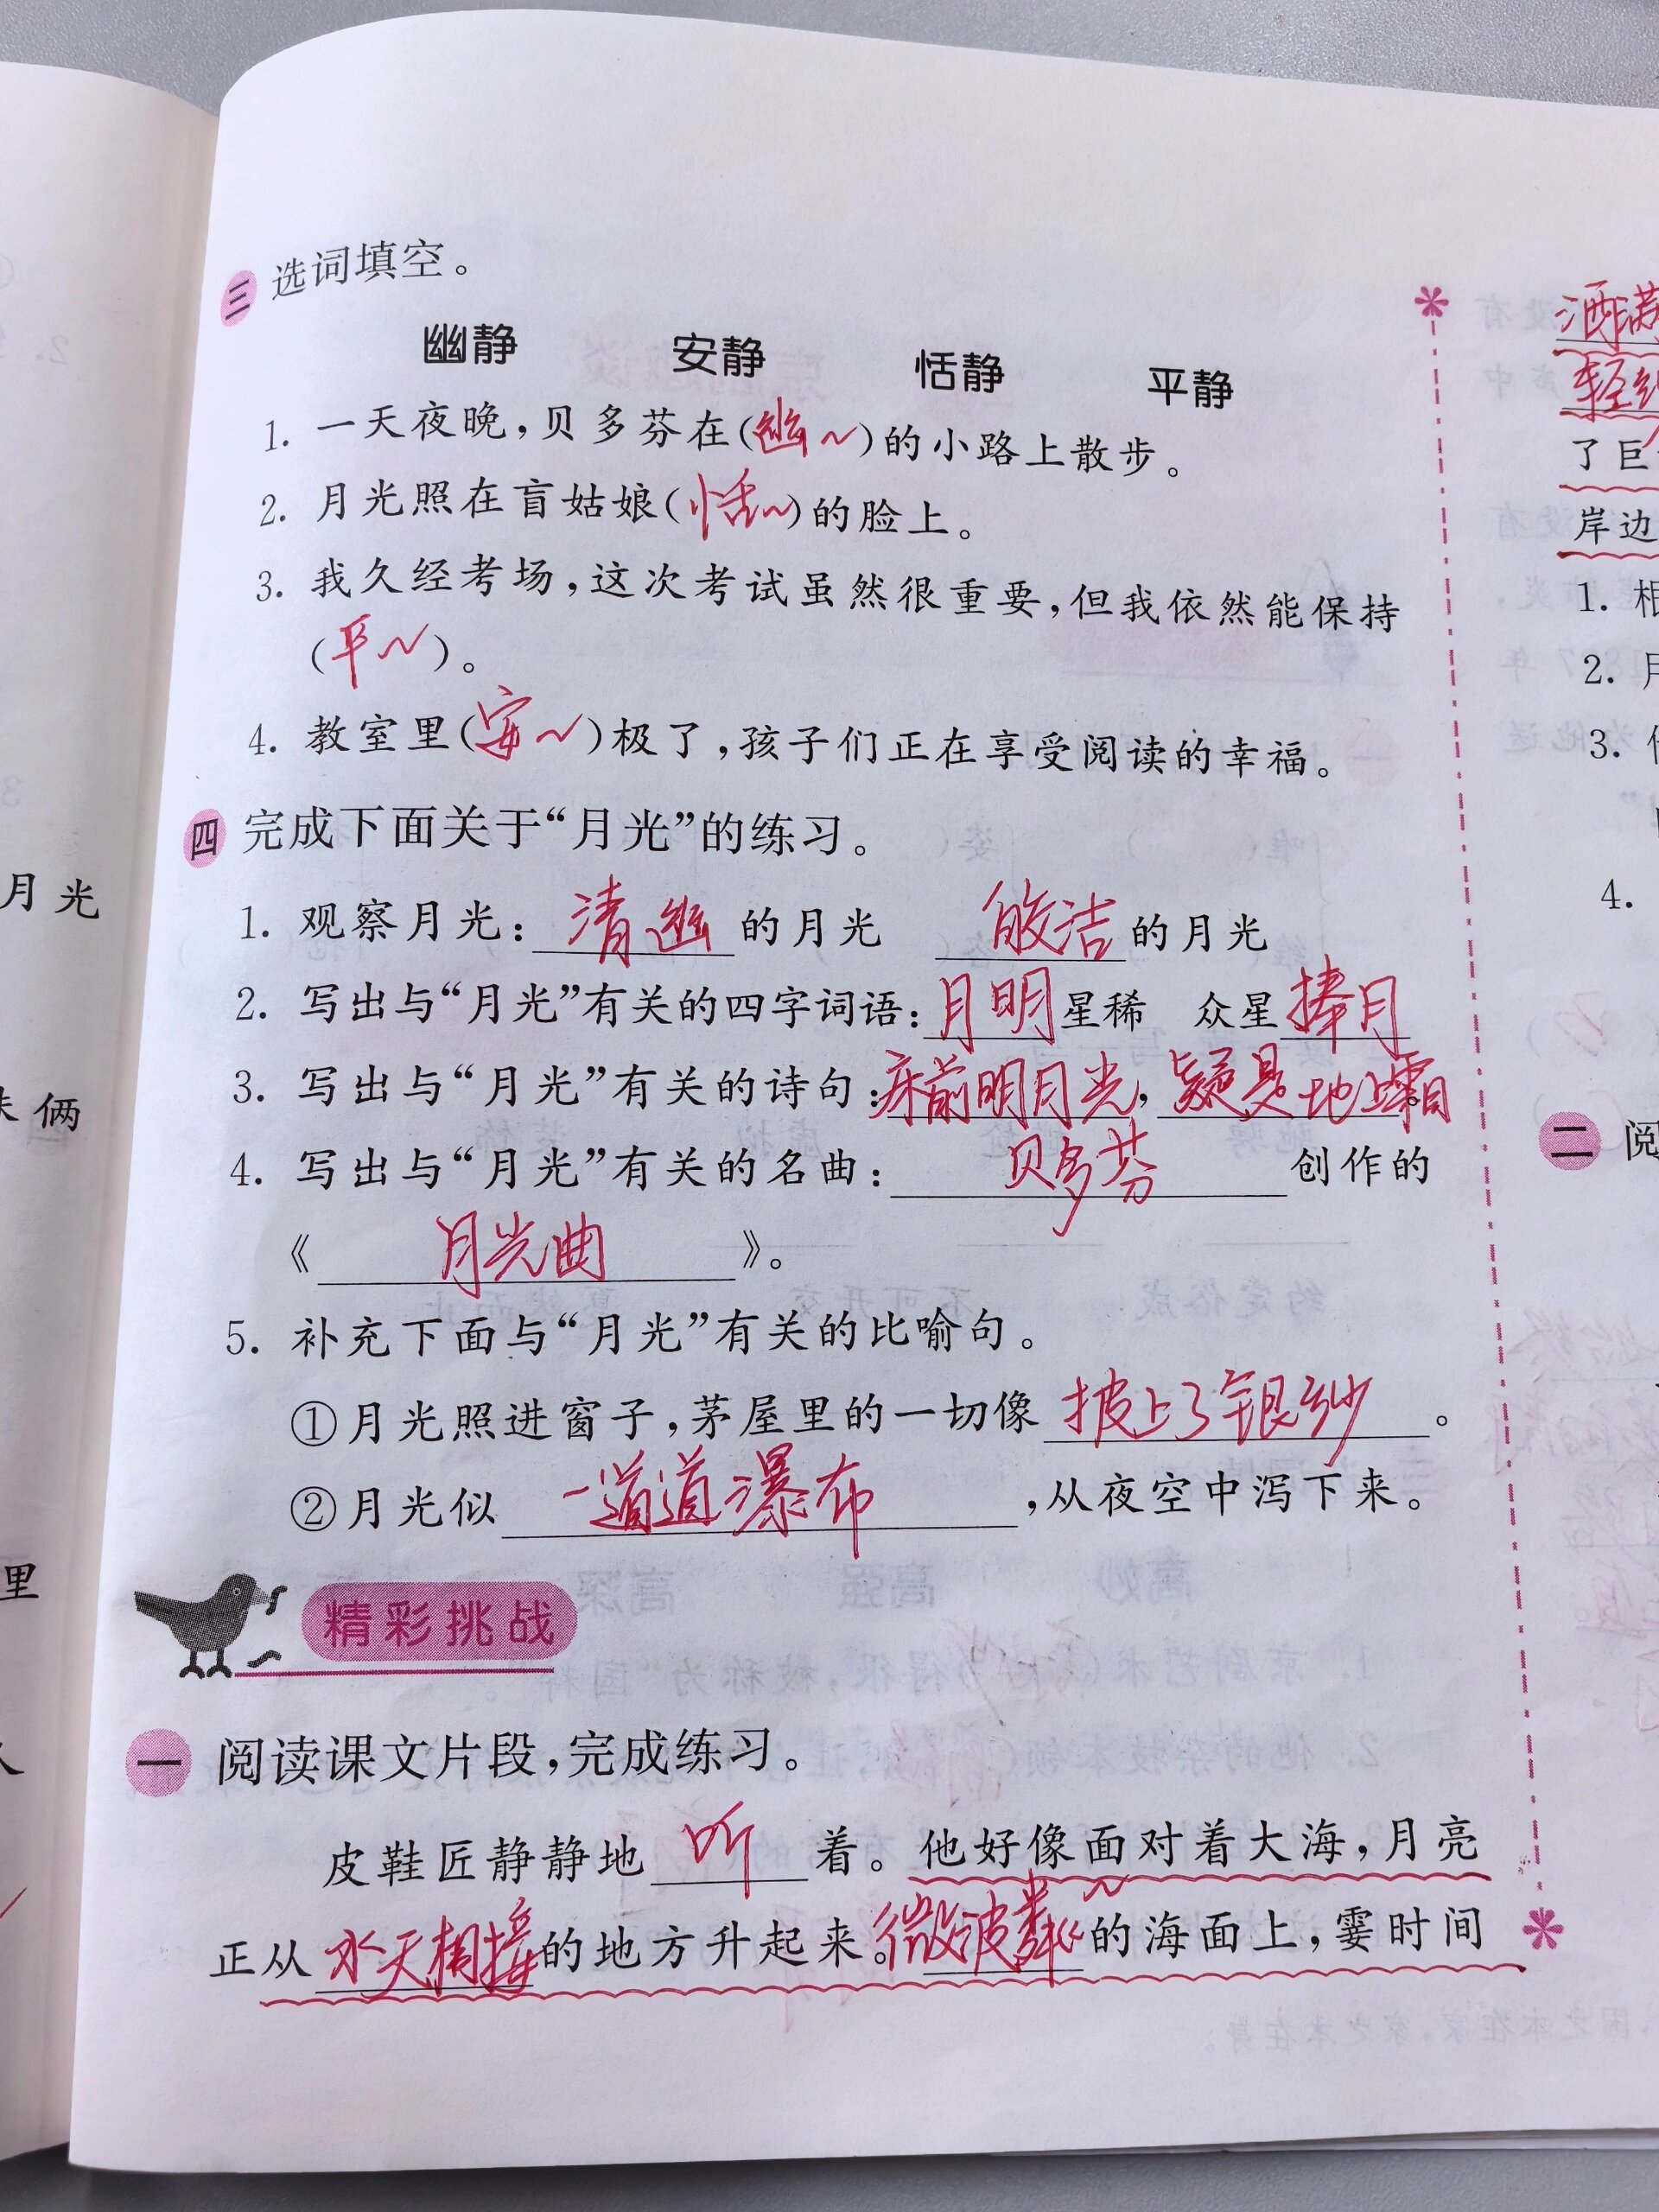 三 选词填空。
幽静 安静 恬静 平静
1. 一天夜晚，贝多芬在(幽～)的小路上散步。
2. 月光照在盲姑娘(恬～)的脸上。
3. 我久经考场，这次考试虽然很重要，但我依然能保持
(平～)。
4. 教室里(安～)极了，孩子们正在享受阅读的幸福。
四 完成下面关于“月光”的练习。
1. 观察月光：清幽的月光 皎洁的月光
2. 写出与“月光”有关的四字词语：月明星稀 众星捧月
3. 写出与“月光”有关的诗句：床前明月光，疑是地上霜。
4. 写出与“月光”有关的名曲：贝多芬创作的
《月光曲》。
5. 补充下面与“月光”有关的比喻句。
①月光照进窗子，茅屋里的一切像披上了银纱。
②月光似一道道瀑布，从夜空中泻下来。
精彩挑战
一 阅读课文片段，完成练习。
皮鞋匠静静地听着。他好像面对着大海，月亮
正从水天相接的地方升起来。微波粼～的海面上，霎时间
月光
俩
里
洒满
轻纱
了巨
岸边
1.
2. 月
3.
4.
二 阅